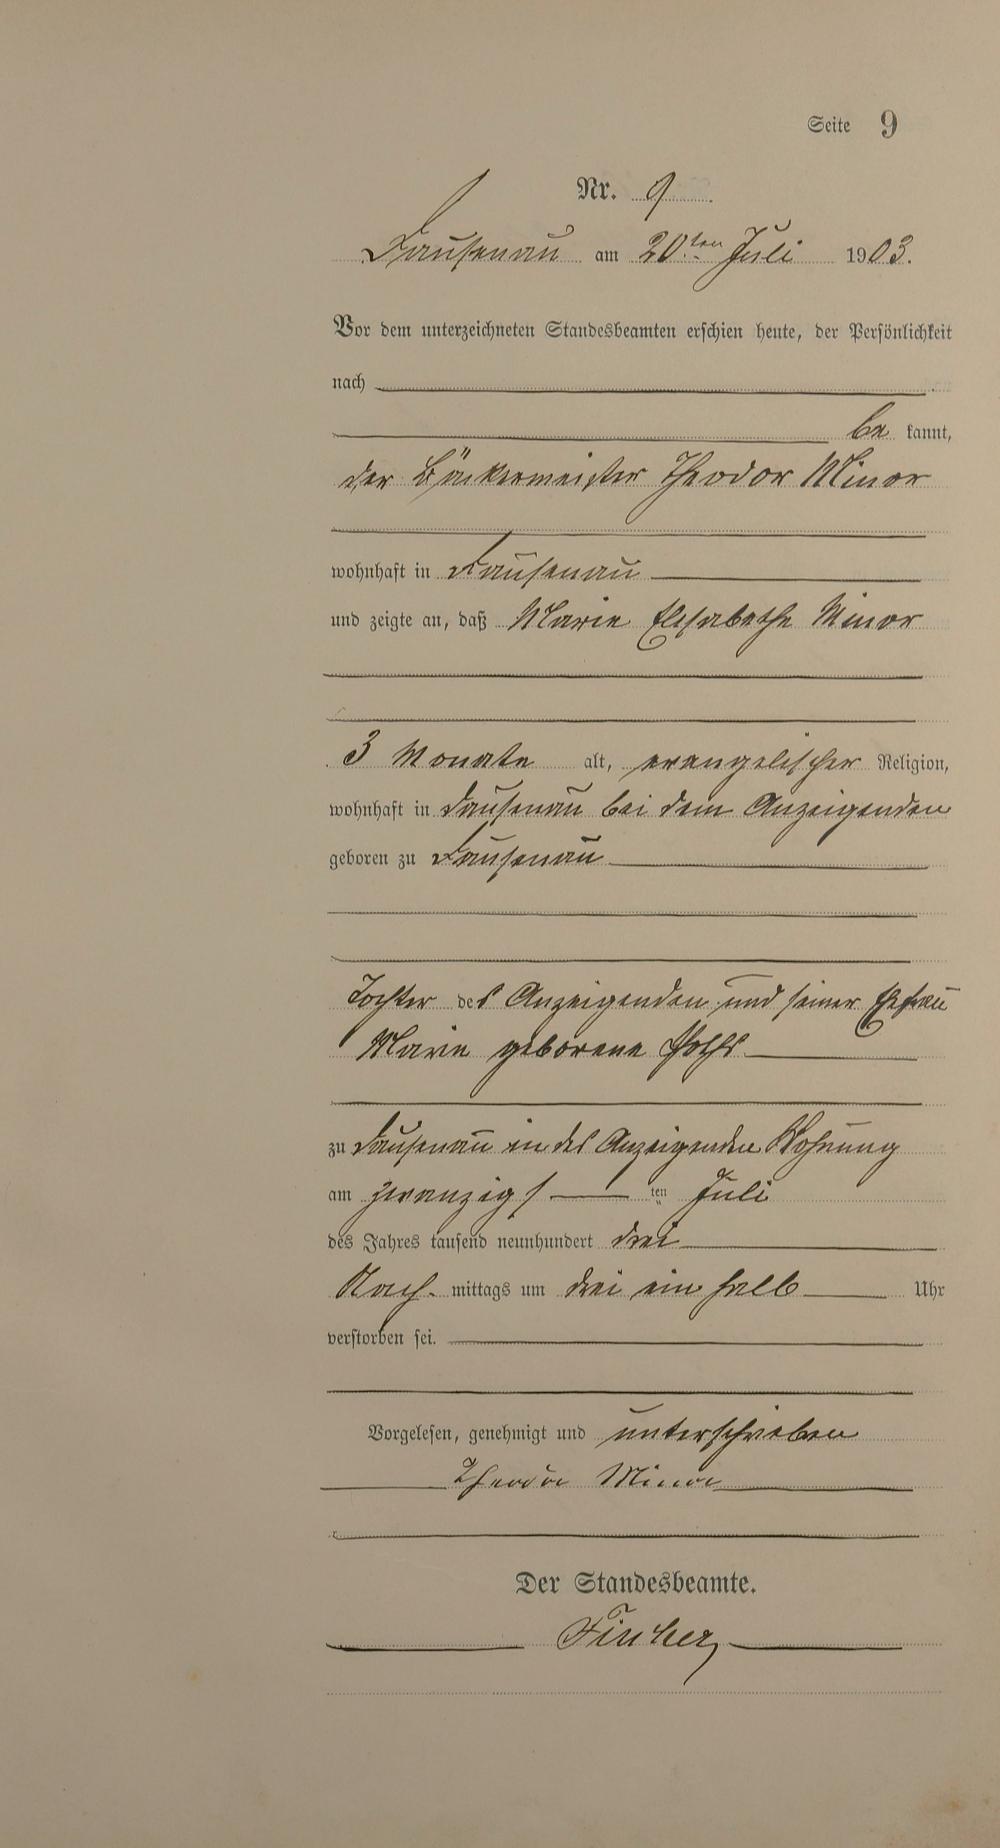 Seite 9
Nr. 9
Dausenau am 20ten Juli 1903.
Vor dem unterzeichneten Standesbeamten erschien heute, der Persönlichkeit
nach
be kannt,
der Bäckermeister Theodor Minor
wohnhaft in Dausenau
und zeigte an, daß Marie Elisabethe Minor
3 Monate alt, evangelischer Religion,
wohnhaft in Dausenau bei dem Anzeigenden
geboren zu Dausenau
Tochter des Anzeigenden und seiner Ehefrau
Marie geborene
zu Dausenau in des Anzeigenden Wohnung
am zwanzigs ten Juli
des Jahres tausend neunhundert drei
Nach mittags um drei ein halb Uhr
verstorben sei.
Vorgelesen, genehmigt und unterschrieben
Theodor Minor
Der Standesbeamte.